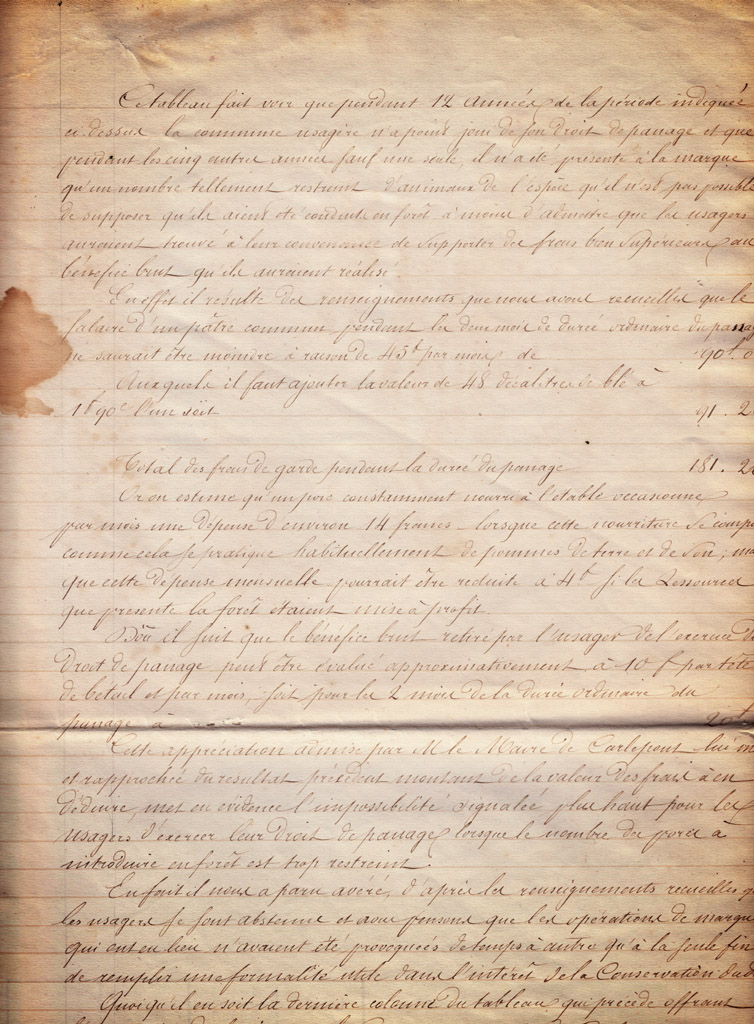 Ce tableau fait voir que pendant 12 années de la période indiquée
ci-dessus la commune usagère n'a point joui de son droit de panage et que
pendant les cinq autres années sauf une seule, il n'a été présenté à la marque
qu'un nombre tellement restreint d'animaux de l'espèce qu'il n'est pas possible
de supposer qu'ils aient été conduits en forêt à moins d'admettre que les usagers
auraient trouvé à leur convenance de supporter des frais bien supérieurs au
bénéfice brut qu'ils auraient réalisé.
En effet il résulte des renseignements que nous avons recueillis que le
salaire d'un pâtre commun pendant les deux mois de durée ordinaire du panag
ne saurait être moindre à raison de 45f par mois de 90f. 0
Auxquels il faut ajouter la valeur de 48 décalitres de blé à
1f 90c l'un soit 91. 2
Total des frais de garde pendant la durée du panage 181. 2
Or on estime qu'un porc constamment nourri à l'étable occasionne
par mois une dépense d'environ 14 francs lorsque cette nourriture se comp
comme cela se pratique habituellement de pommes de terre et de son; ma
que cette dépense mensuelle pourrait être réduite à 4f si les ressources
que présente la forêt étaient mise à profit.
D'où il suit que le bénéfice brut retiré par l'usager de l'exercice d
droit de panage peut être évalué approximativement à 10 f par tête
de bétail et par mois, soit pour les 2 mois de la durée ordinaire du
panage à 20f
Cette appréciation admise par M le Maire de Carlepont lui m
et rapprochée du résultat précédent montant de la valeur des frais à en
déduire, met en évidence l'impossibilité signalée plus haut pour les
usagers d'exercer leur droit de panage lorsque le nombre des porcs à
introduire en forêt est trop restreint.
En fait il nous a paru avéré, d'après les renseignements recueillis q
les usagers se sont abstenus et nous pensons que les opérations de marque
qui ont eu lieu n'avaient été provoquées de temps à autre qu'à la seule fin
de remplir une formalité utile dans l'intérêt de la Conservation du d
Quoiqu'il en soit la dernière colonne du tableau qui précède offrant